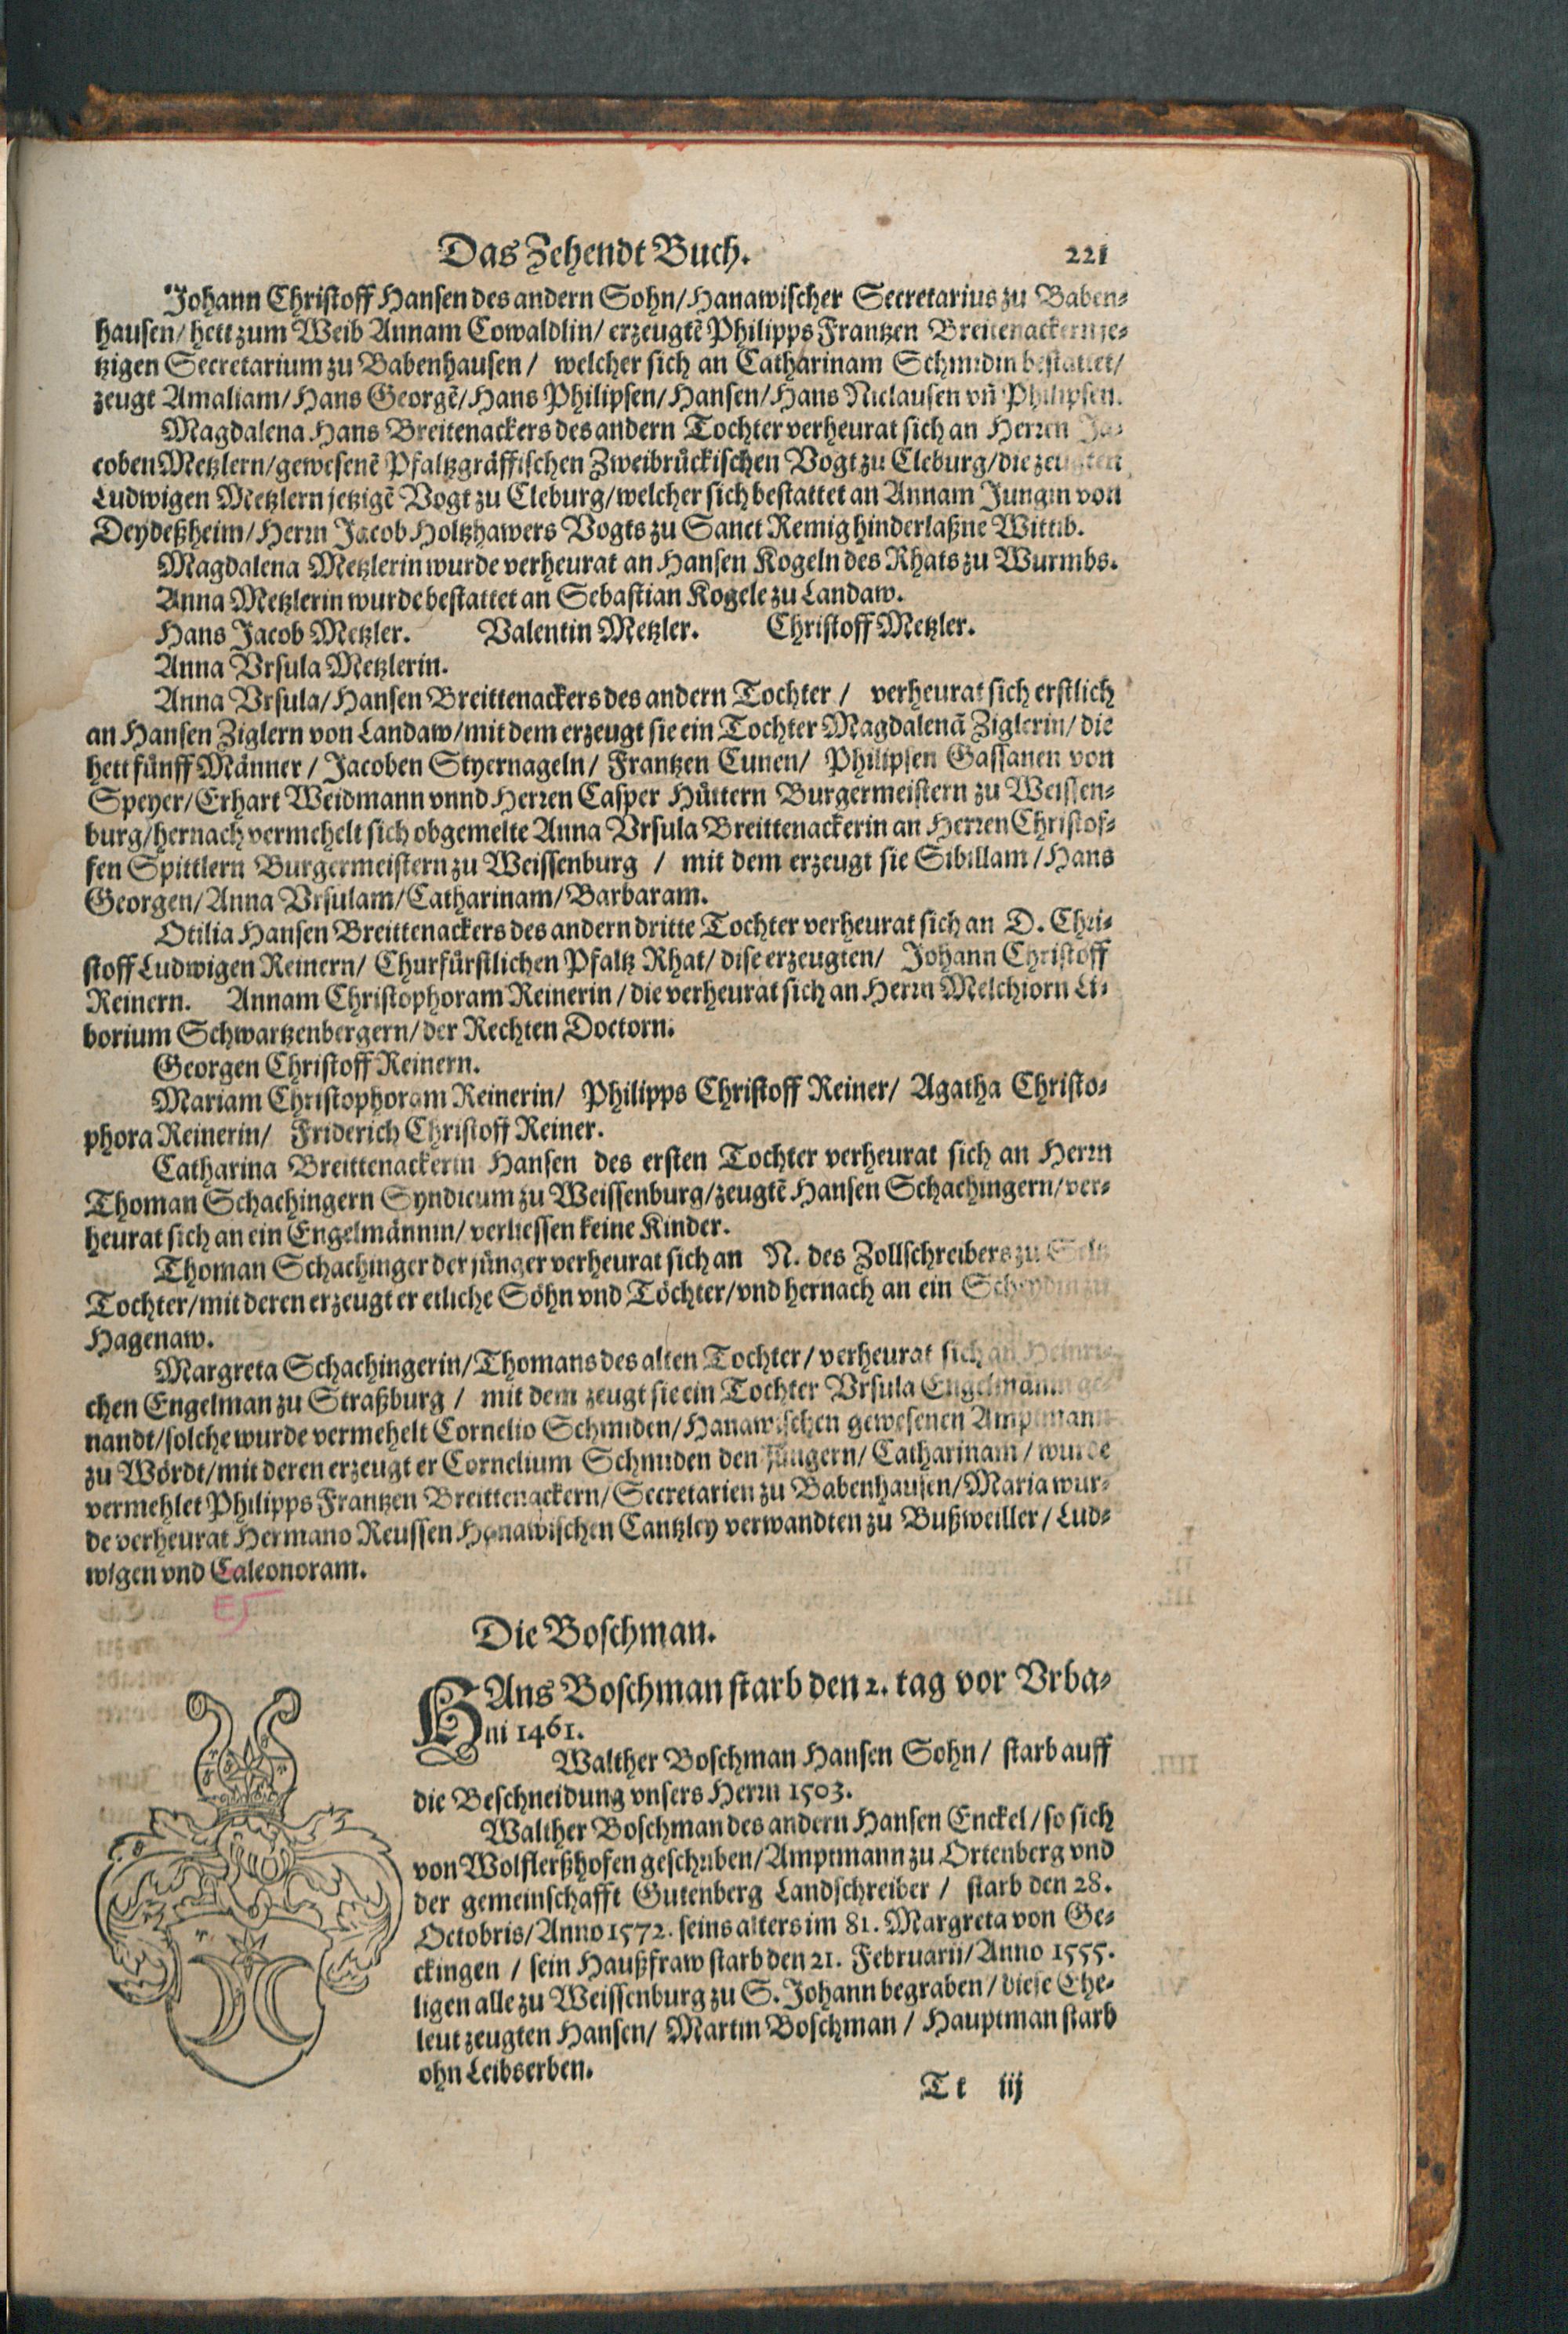 Das Zehendt Buch. 221
Johann Christoff Hansen des andern Sohn/Hanawischer Secretarius zu Baben⸗
hausen/hett zum Weib Annam Cowaldlin/erzeugtē Philipps Frantzen Breitenackern je⸗
tzigen Secretarium zu Babenhausen/ welcher sich an Catharinam Schmidin bestattet/
zeugt Amaliam/Hans Georgē/Hans Philipsen/Hansen/Hans Niclausen vn̄ Philipsen.
Magdalena Hans Breitenackers des andern Tochter verheurat sich an Herren Ja⸗
coben Metzlern/gewesenē Pfaltzgräffischen Zweibrückischen Vogt zu Cleburg/die zeugten
Ludwigen Metzlern jetzigē Vogt zu Cleburg/welcher sich bestattet an Annam Jungin von
Deydeßheim/Herrn Jacob Holtzhawers Vogts zu Sanct Remig hinderlaßne Wittib.
Magdalena Metzlerin wurde verheurat an Hansen Kogeln des Rhats zu Wurmbs.
Anna Metzlerin wurde bestattet an Sebastian Kogele zu Landaw.
Hans Jacob Metzler. Valentin Metzler. Christoff Metzler.
Anna Vrsula Metzlerin.
Anna Vrsula/Hansen Breittenackers des andern Tochter/ verheurat sich erstlich
an Hansen Ziglern von Landaw/mit dem erzeugt sie ein Tochter Magdalenā Ziglerin/die
hett fünff Männer/Jacoben Styernageln/ Frantzen Cunen/ Philipsen Gassanen von
Speyer/Erhart Weidmann vnnd Herren Casper Hüttern Burgermeistern zu Weissen⸗
burg/hernach vermehelt sich obgemelte Anna Vrsula Breittenackerin an Herren Christof⸗
fen Spittlern Burgermeistern zu Weissenburg / mit dem erzeugt sie Sibillam/Hans
Georgen/Anna Vrsulam/Catharinam/Barbaram.
Otilia Hansen Breittenackers des andern dritte Tochter verheurat sich an D. Chri⸗
stoff Ludwigen Reinern/ Churfürstlichen Pfaltz Rhat/ dise erzeugten/ Johann Christoff
Reinern. Annam Christophoram Reinerin/die verheurat sich an Herrn Melchiorn Li⸗
borium Schwartzenbergern/der Rechten Doctorn.
Georgen Christoff Reinern.
Mariam Christophoram Reinerin/ Philipps Christoff Reiner/ Agatha Christo⸗
phora Reinerin/ Friderich Christoff Reiner.
Catharina Breittenackerin Hansen des ersten Tochter verheurat sich an Herrn
Thoman Schachingern Syndicum zu Weissenburg/zeugtē Hansen Schachingern/ver⸗
heurat sich an ein Engelmännin/verliessen keine Kinder.
Thoman Schachinger der jünger verheurat sich an N. des Zollschreibers zu
Tochter/mit deren erzeugt er etliche Söhn vnd Töchter/vnd hernach an ein
Hagenaw.
Margreta Schachingerin/Thomans des alten Tochter/verheurat sich an Heinri⸗
chen Engelman zu Straßburg / mit dem zeugt sie ein Tochter Vrsula Engelmänin ge⸗
nandt/solche wurde vermehelt Cornelio Schmiden/Hanawischen gewesenen Amptmann
zu Wördt/mit deren erzeugt er Cornelium Schmiden den Jüngern/Catharinam/wurde
vermehlet Philipps Frantzen Breittenackern/Secretarien zu Babenhausen/Maria wur⸗
de verheurat Hermano Reussen Hanawischen Cantzley verwandten zu Bußweiller/Lud⸗
wigen vnd Caleonoram.
E
Die Boschman.
HAns Boschman starb den 2. tag vor Vrba⸗
ni 1461.
Walther Boschman Hansen Sohn/ starb auff
die Beschneidung vnsers Herrn 1503.
Walther Boschman des andern Hansen Enckel/so sich
von Wolflerßhofen geschriben/Amptmann zu Ortenberg vnd
der gemeinschafft Gutenberg Landschreiber / starb den 28.
Octobris/Anno 1572. seins alters im 81. Margreta von Ge⸗
ckingen / sein Haußfraw starb den 21. Februarii/Anno 1555.
ligen alle zu Weissenburg zu S. Johann begraben/diese Ehe⸗
leut zeugten Hansen/ Martin Boschman/ Hauptman starb
ohn Leibserben.
Tt iij